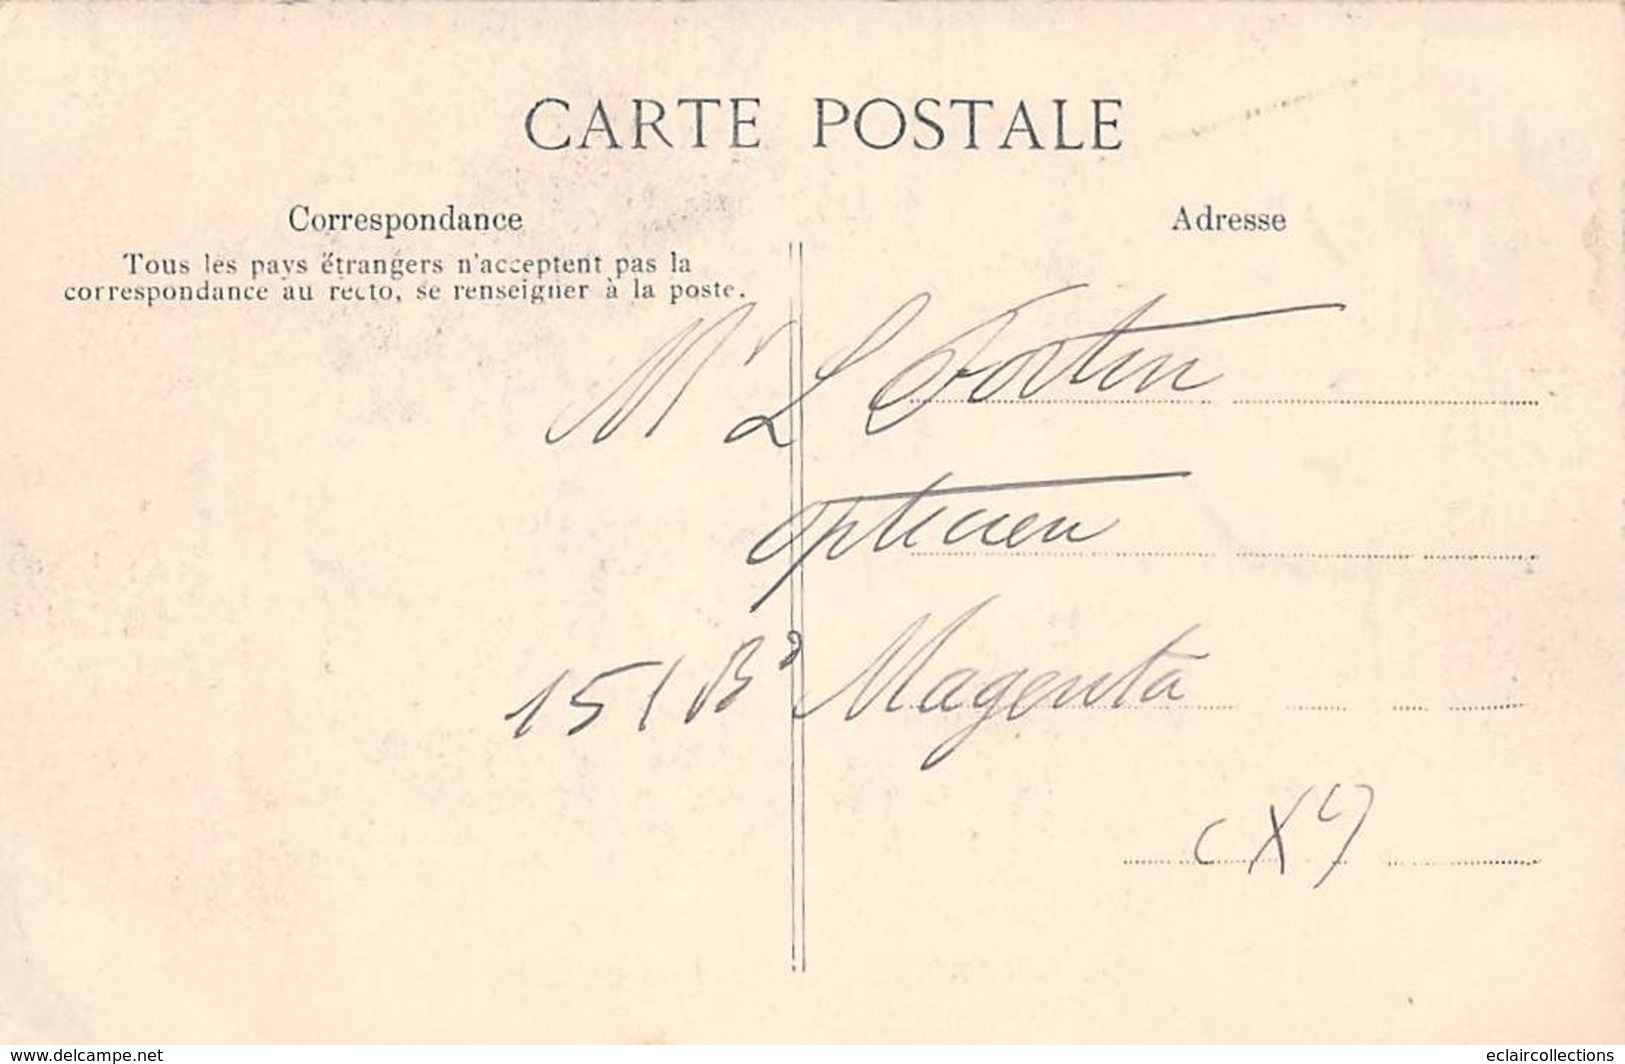 CARTE POSTALE
Correspondance
Tous les pays étrangers n'acceptent pas la
correspondance au recto, se renseigner à la poste.
Adresse
Mr L Fortin
opticien
151 Bd Magenta
www.delcampe.net
eclaircollections